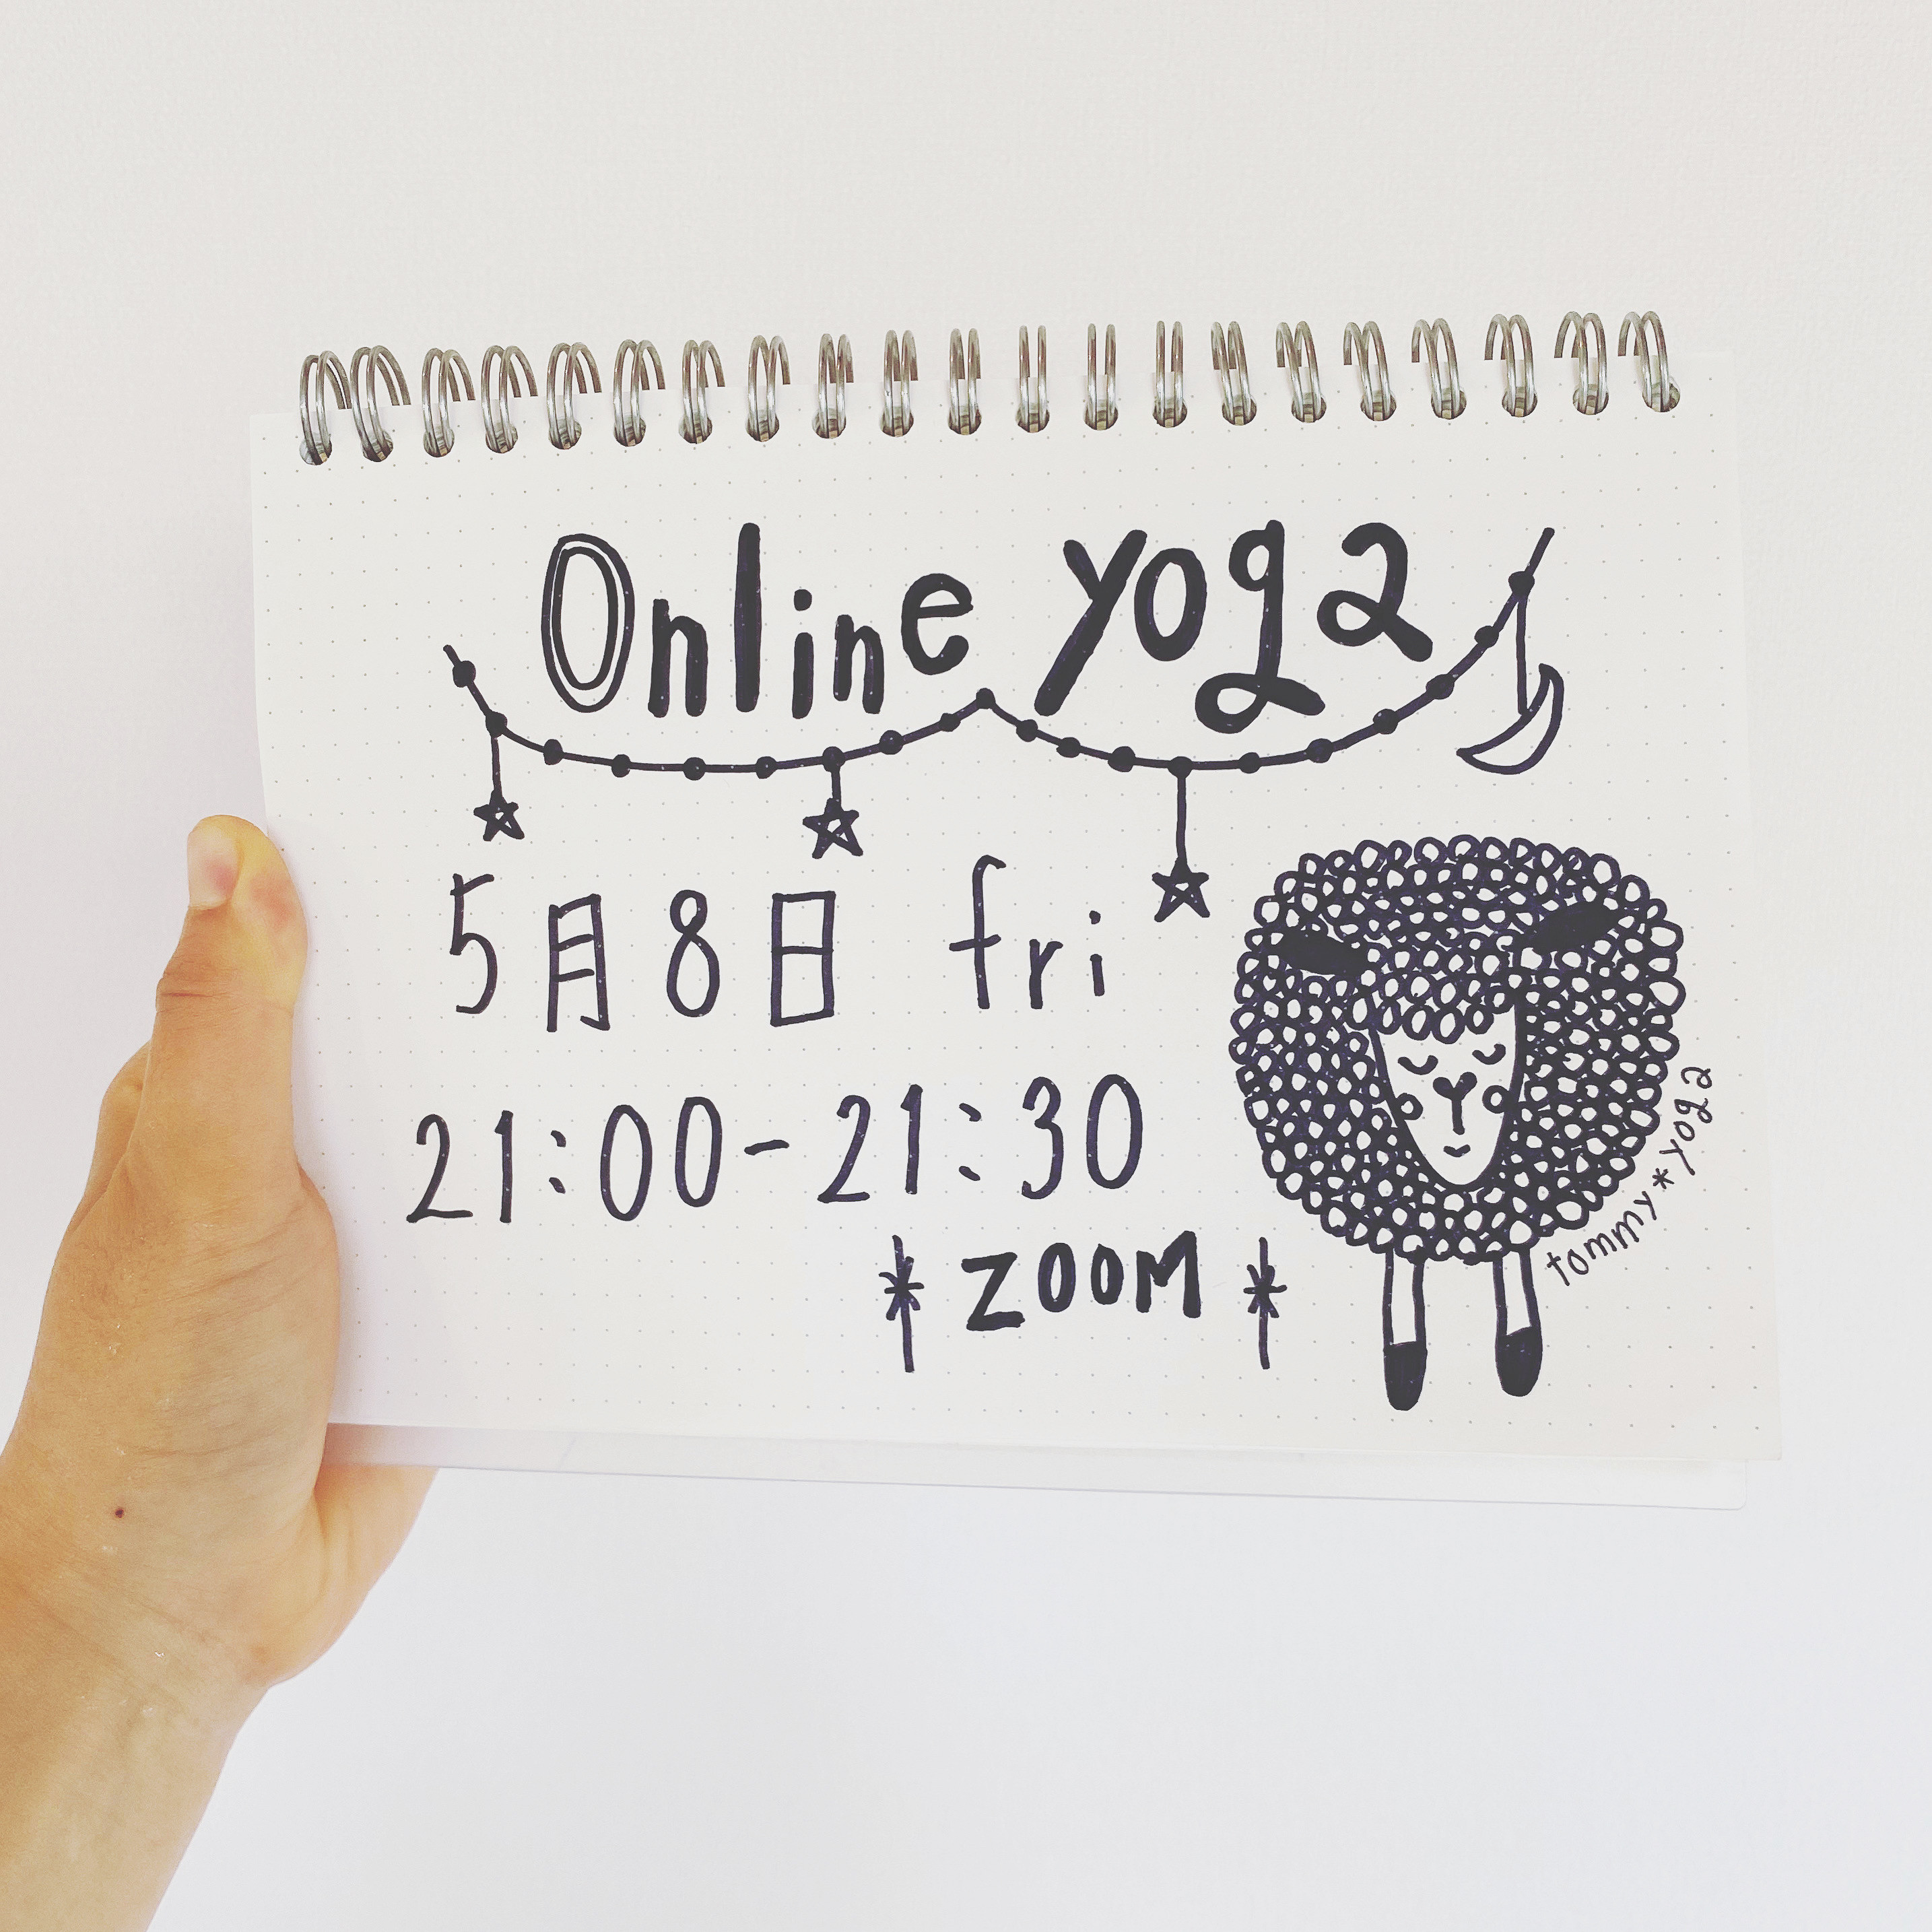 Online yoga
5月8日 fri
21:00-21:30
* ZOOM *
tommy*yoga